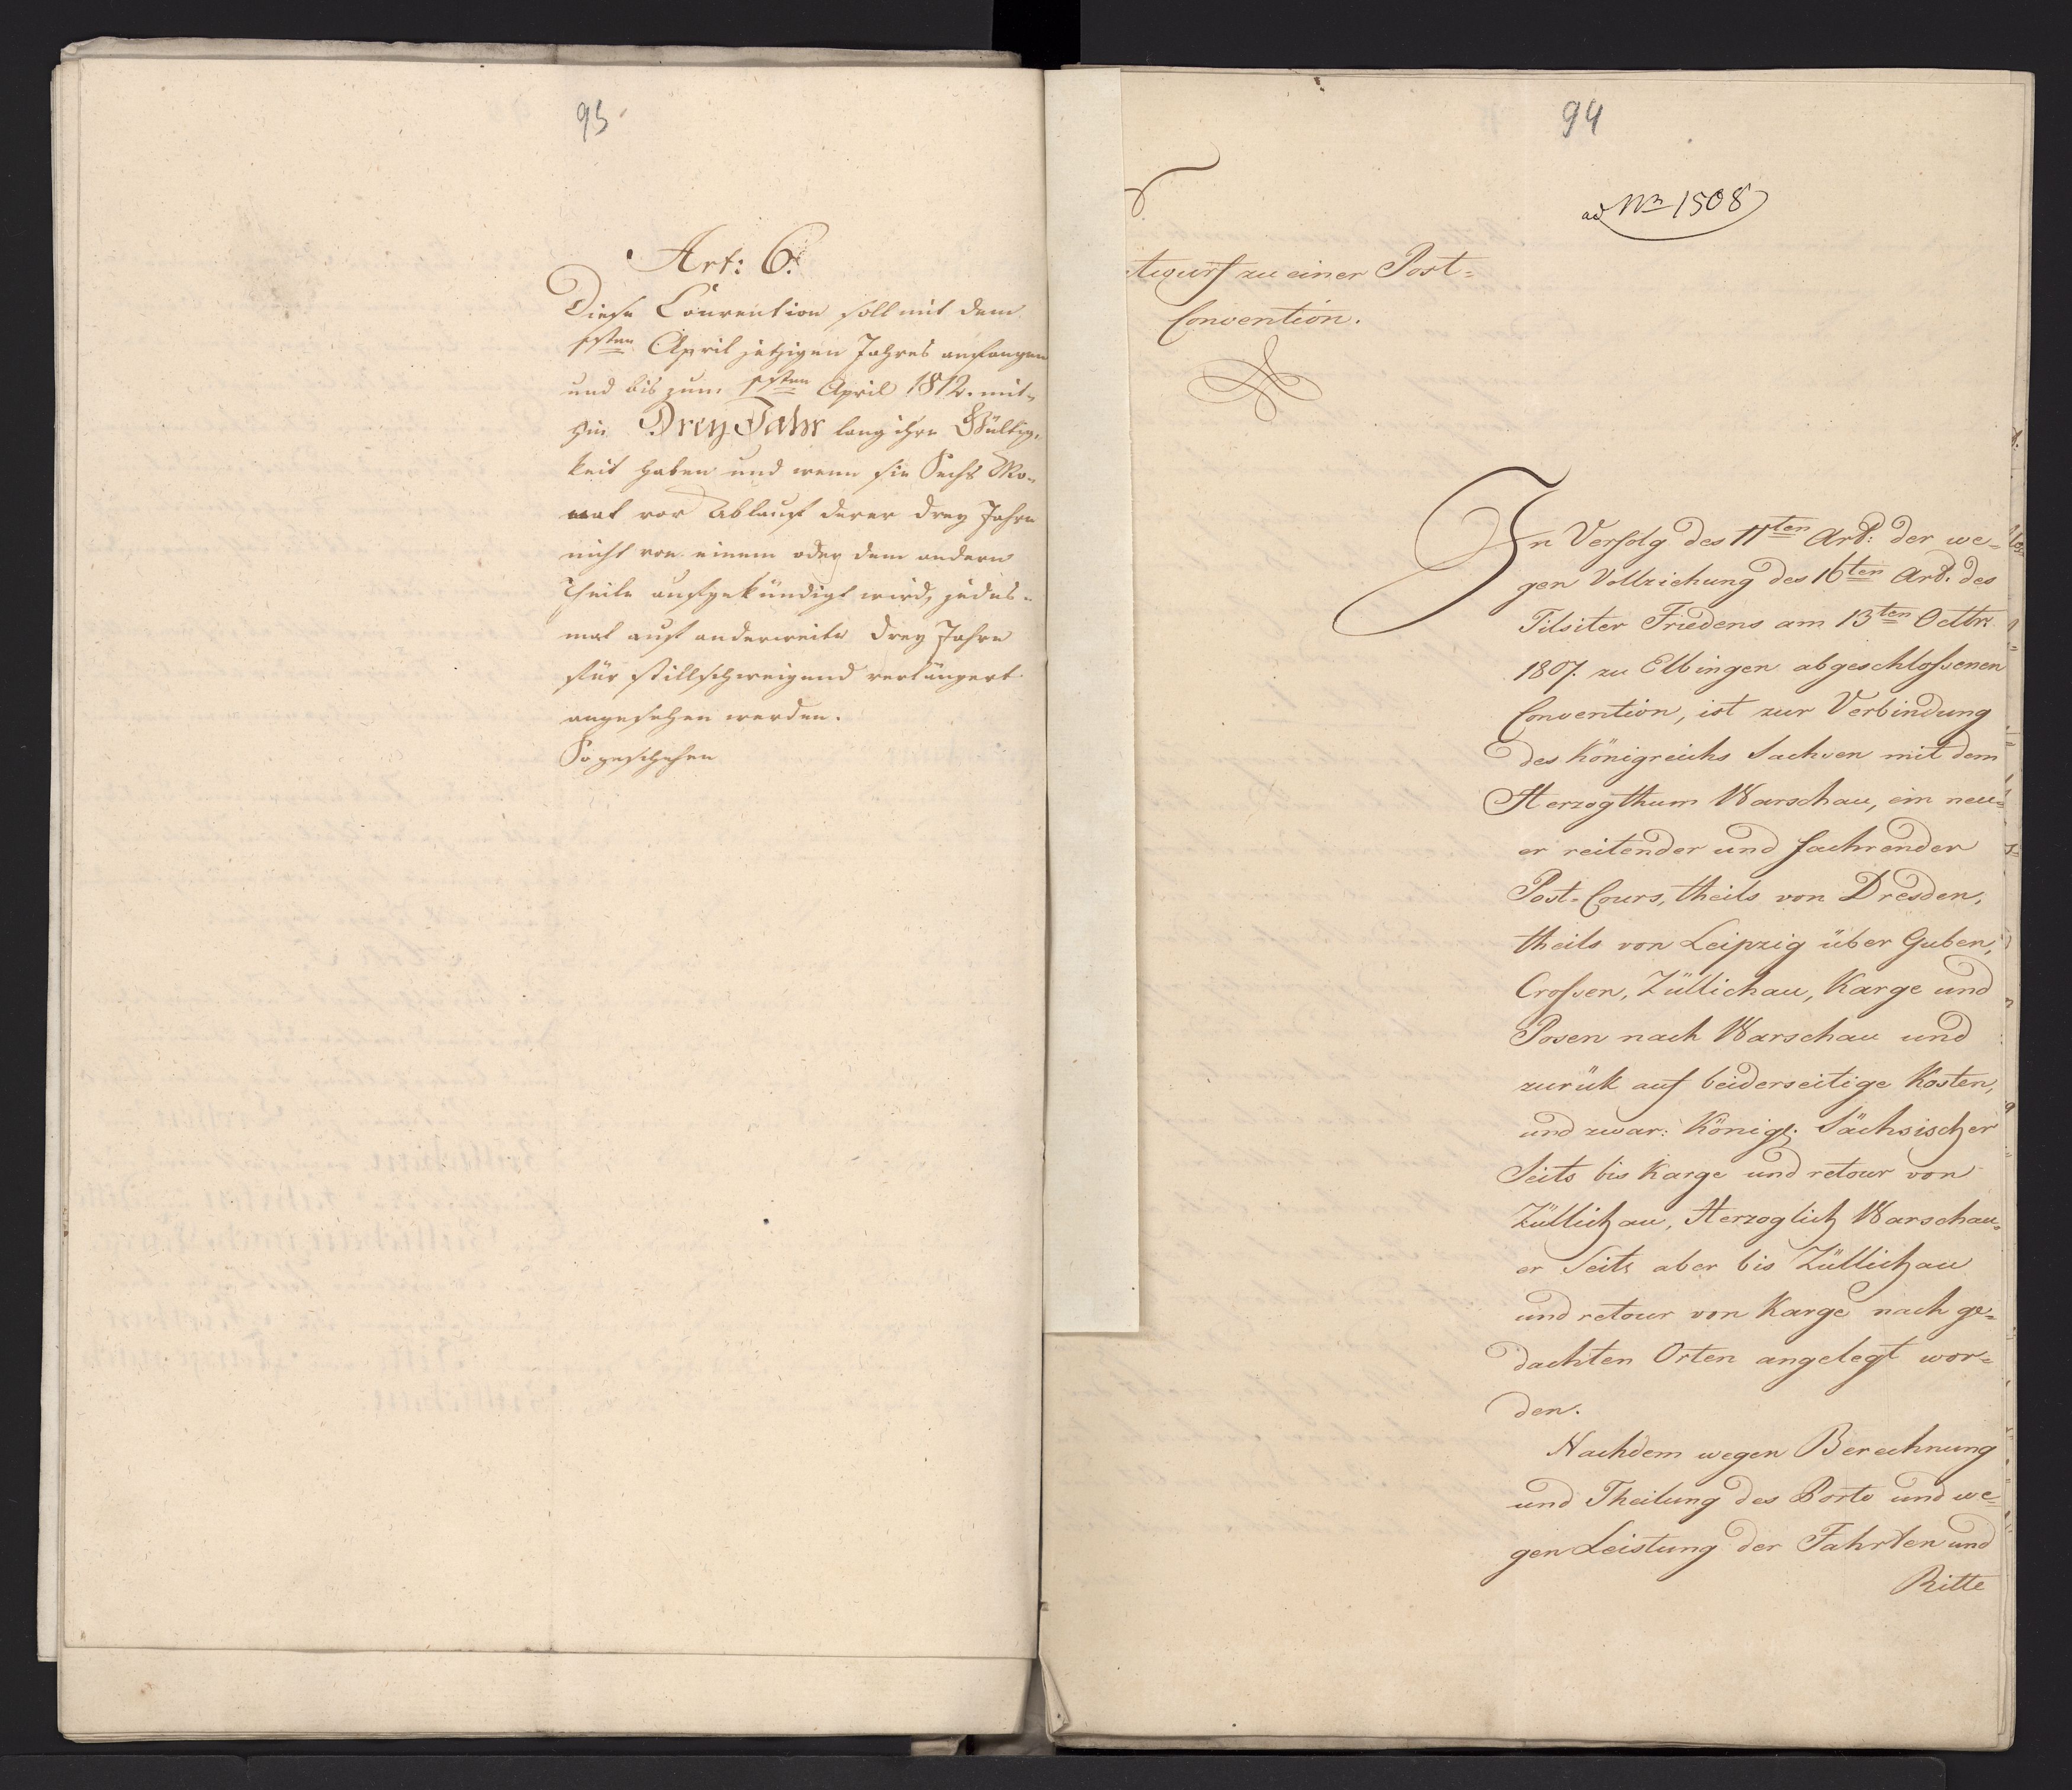 93
Art: 6.
Diese Convention soll mit dem
1sten April jetzigen Jahres anfangen
und bis zum 1sten April 1812. mit-
hin Drey Jahr lang ihre Gültig-
keit haben und wenn sie Sechs Mo-
nat vor Ablauf derer drey Jahre
nicht von einem oder dem andern
Theile aufgekündigt wird, jedes-
mal auf anderweite drey Jahre
für stillschweigend verlängert
angesehen werden.
So geschehen
94
ad Nr 1508
twurf zu einer Post-
Convention.
In Verfolg des 11ten Art: der we-
gen Vollziehung des 16ten Art. des
Tilsiter Friedens am 13ten Octbr
1807. zu Elbingen abgeschloßenen
Convention, ist zur Verbindung
des Königreichs Sachsen mit dem
Herzogthum Warschau, ein neu-
er reitender und fachrender
Post-Cours, theils von Dresden,
theils von Leipzig über Guben,
Croßen, Züllichau, Karge und
Posen nach Warschau und
zurük auf beiderseitige Kosten,
und zwar: Königl. Sächsischer
Seits bis Karge und retour von
Züllichau, Herzoglich Warschau-
er Seits aber bis Züllichau
und retour von Karge nach ge-
dachten Orten angelegt wor-
den.
Nachdem wegen Berechnung
und Theilung des Porto und we-
gen Leistung der Fahrten und
Ritte